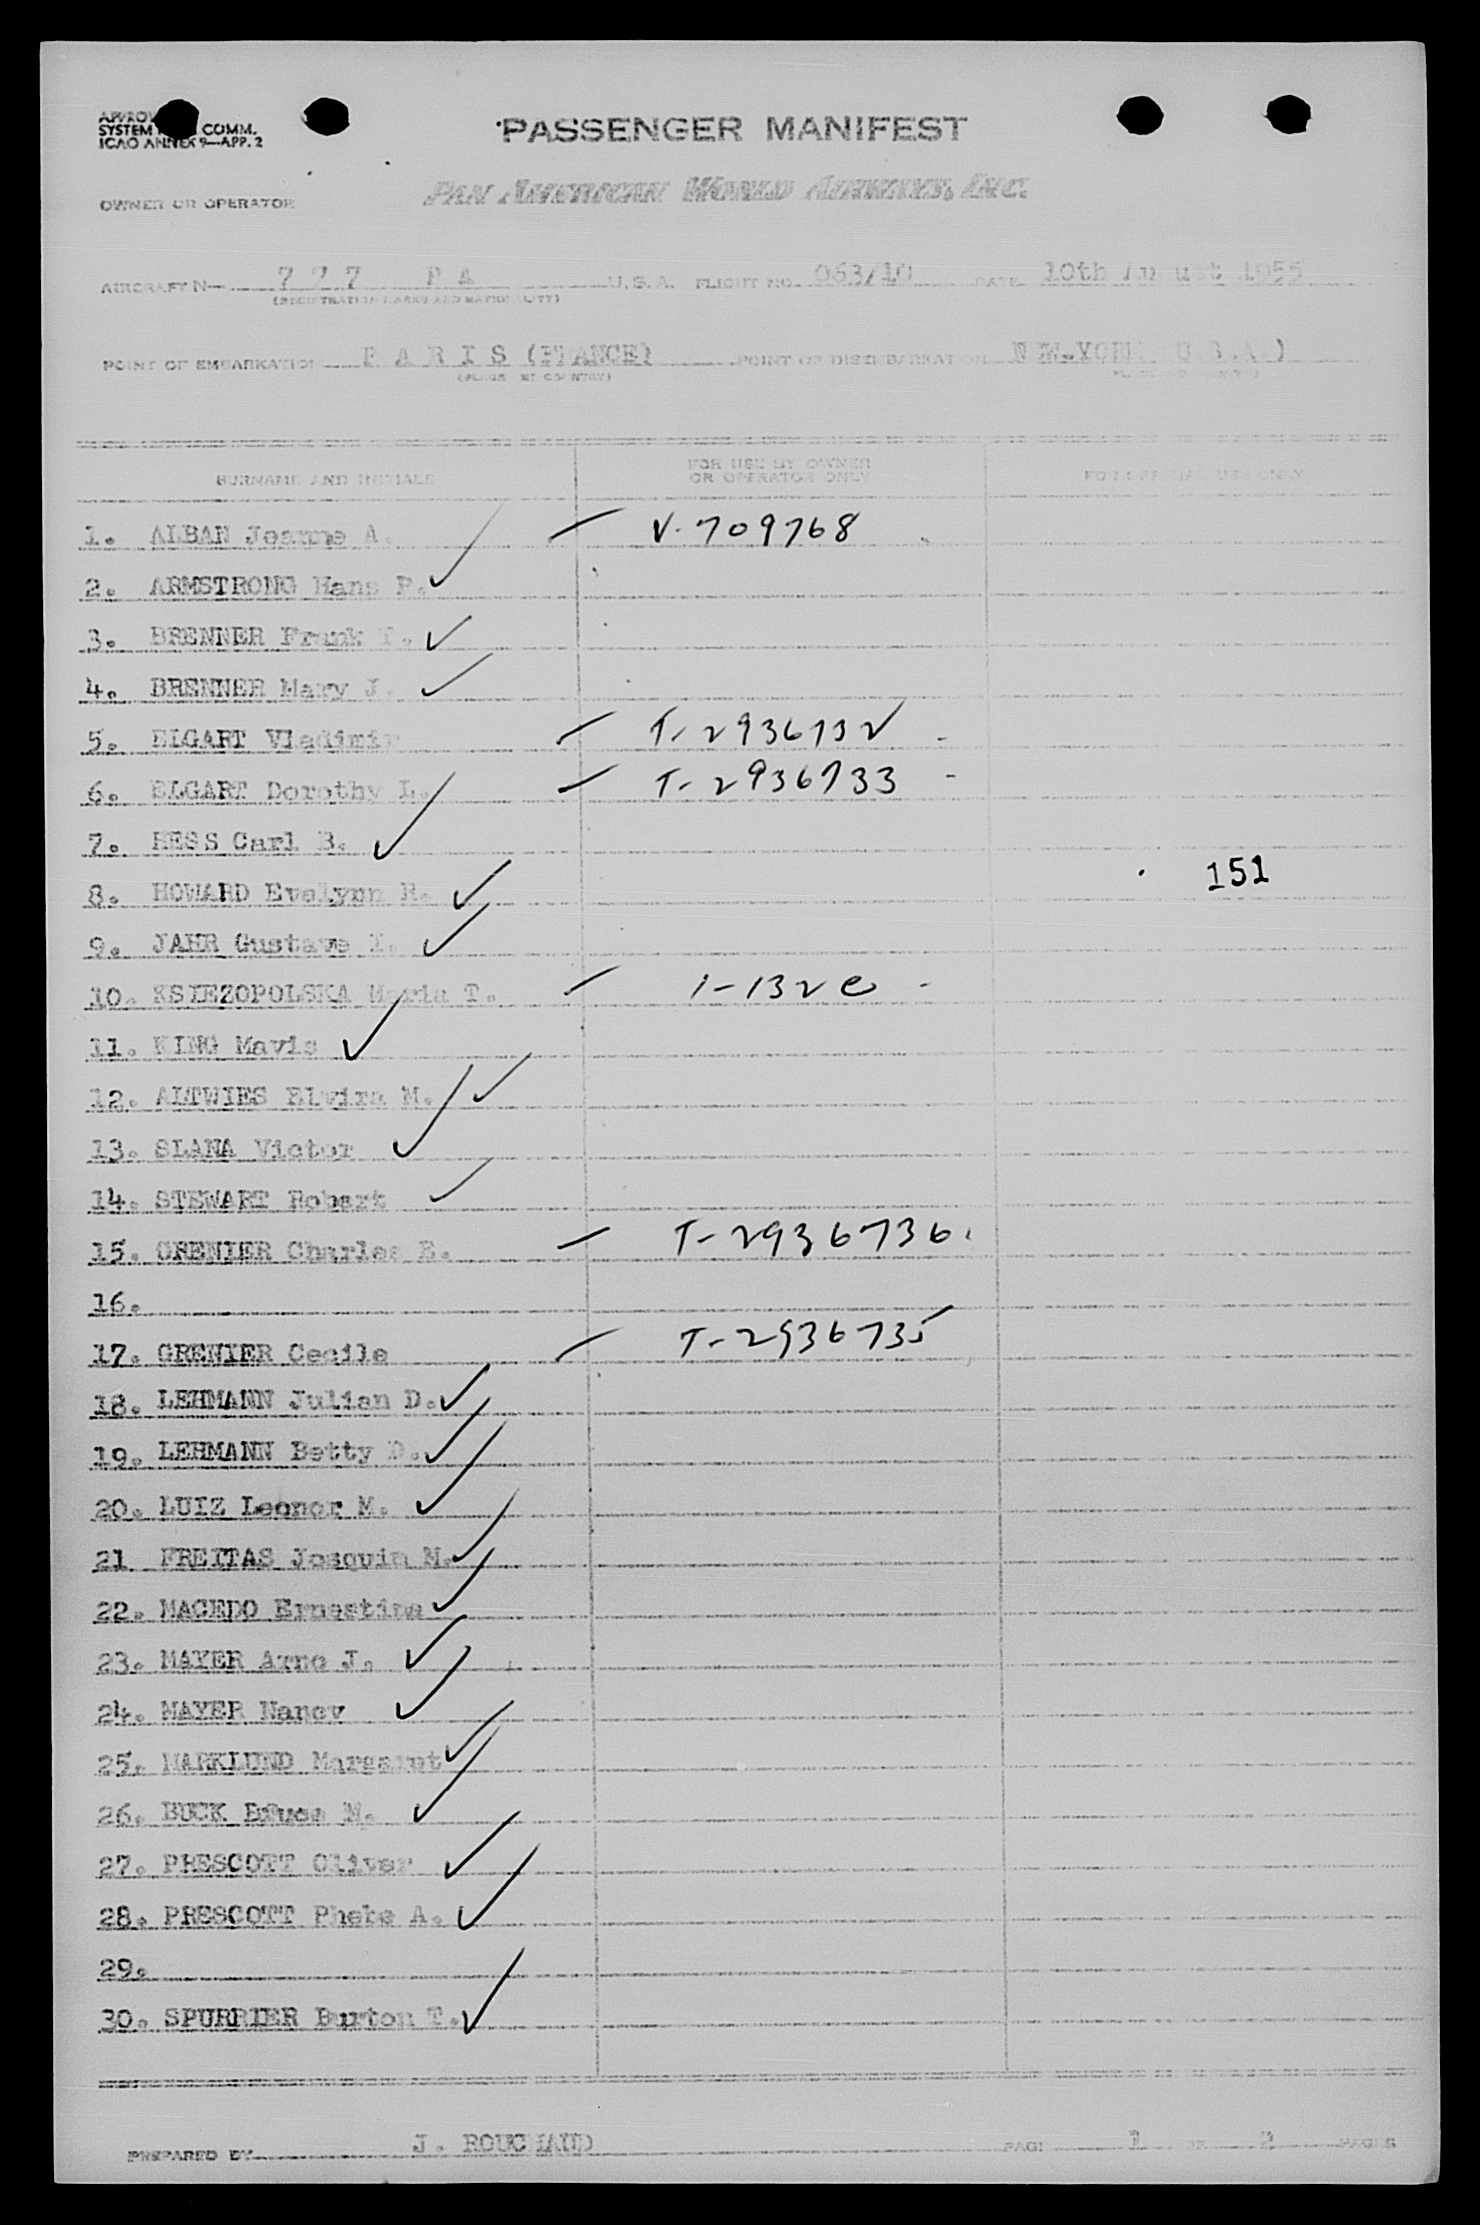 SYSTEM COMM.
ICAO ANNEX 9—APP. 2
PASSENGER MANIFEST
OWNER OR OPERATOR PAN AMERICAN WORLD AIRWAYS, INC.
AIRCRAFT N— 777 PA U.S.A. FLIGHT NO. 063/10 DATE 10th August 1955
(REGISTRATION MARKS AND NATIONALITY)
POINT OF EMBARKATION P A R I S (FRANCE) POINT OF DISEMBARKATION
(PLACE AND COUNTRY)
SURNAME AND INITIALS FOR USE BY OWNER OR OPERATOR ONLY FOR OFFICIAL USE ONLY
1. ALBAN Jeanne A. V-709768
2. ARMSTRONG Hans F.
3. BRENNER Frank
4. BRENNER Mary J.
5. ELGART Vladimir T-2936732
6. ELGART Dorothy L. T-2936733
7. HESS Carl B.
8. HOWARD Evelynn R. 151
9. JAHR Gustave
10. KSIEZOPOLSKA Maria T. 1-132 e
11. KING Mavis
12. ALTWIES Elvira M.
13. SLANA Victor
14. STEWART Robert
15. GRENIER Charles E. T-2936736
16.
17. GRENIER Cecile T-2936735
18. LEHMANN Julian D.
19. LEHMANN Betty D.
20. LUIZ Leonor M.
21 FREITAS Joaquim M.
22. MACEDO Ernestina
23. MAYER Arno J.
24. MAYER Nancy
25. MARKLUND Margaret
26. BUCK Bruce M.
27. PRESCOTT Oliver
28. PRESCOTT Phebe A.
29.
30. SPURRIER Burton T.
PREPARED BY J. ROUCHAUD PAGE 1 OF 2 PAGES